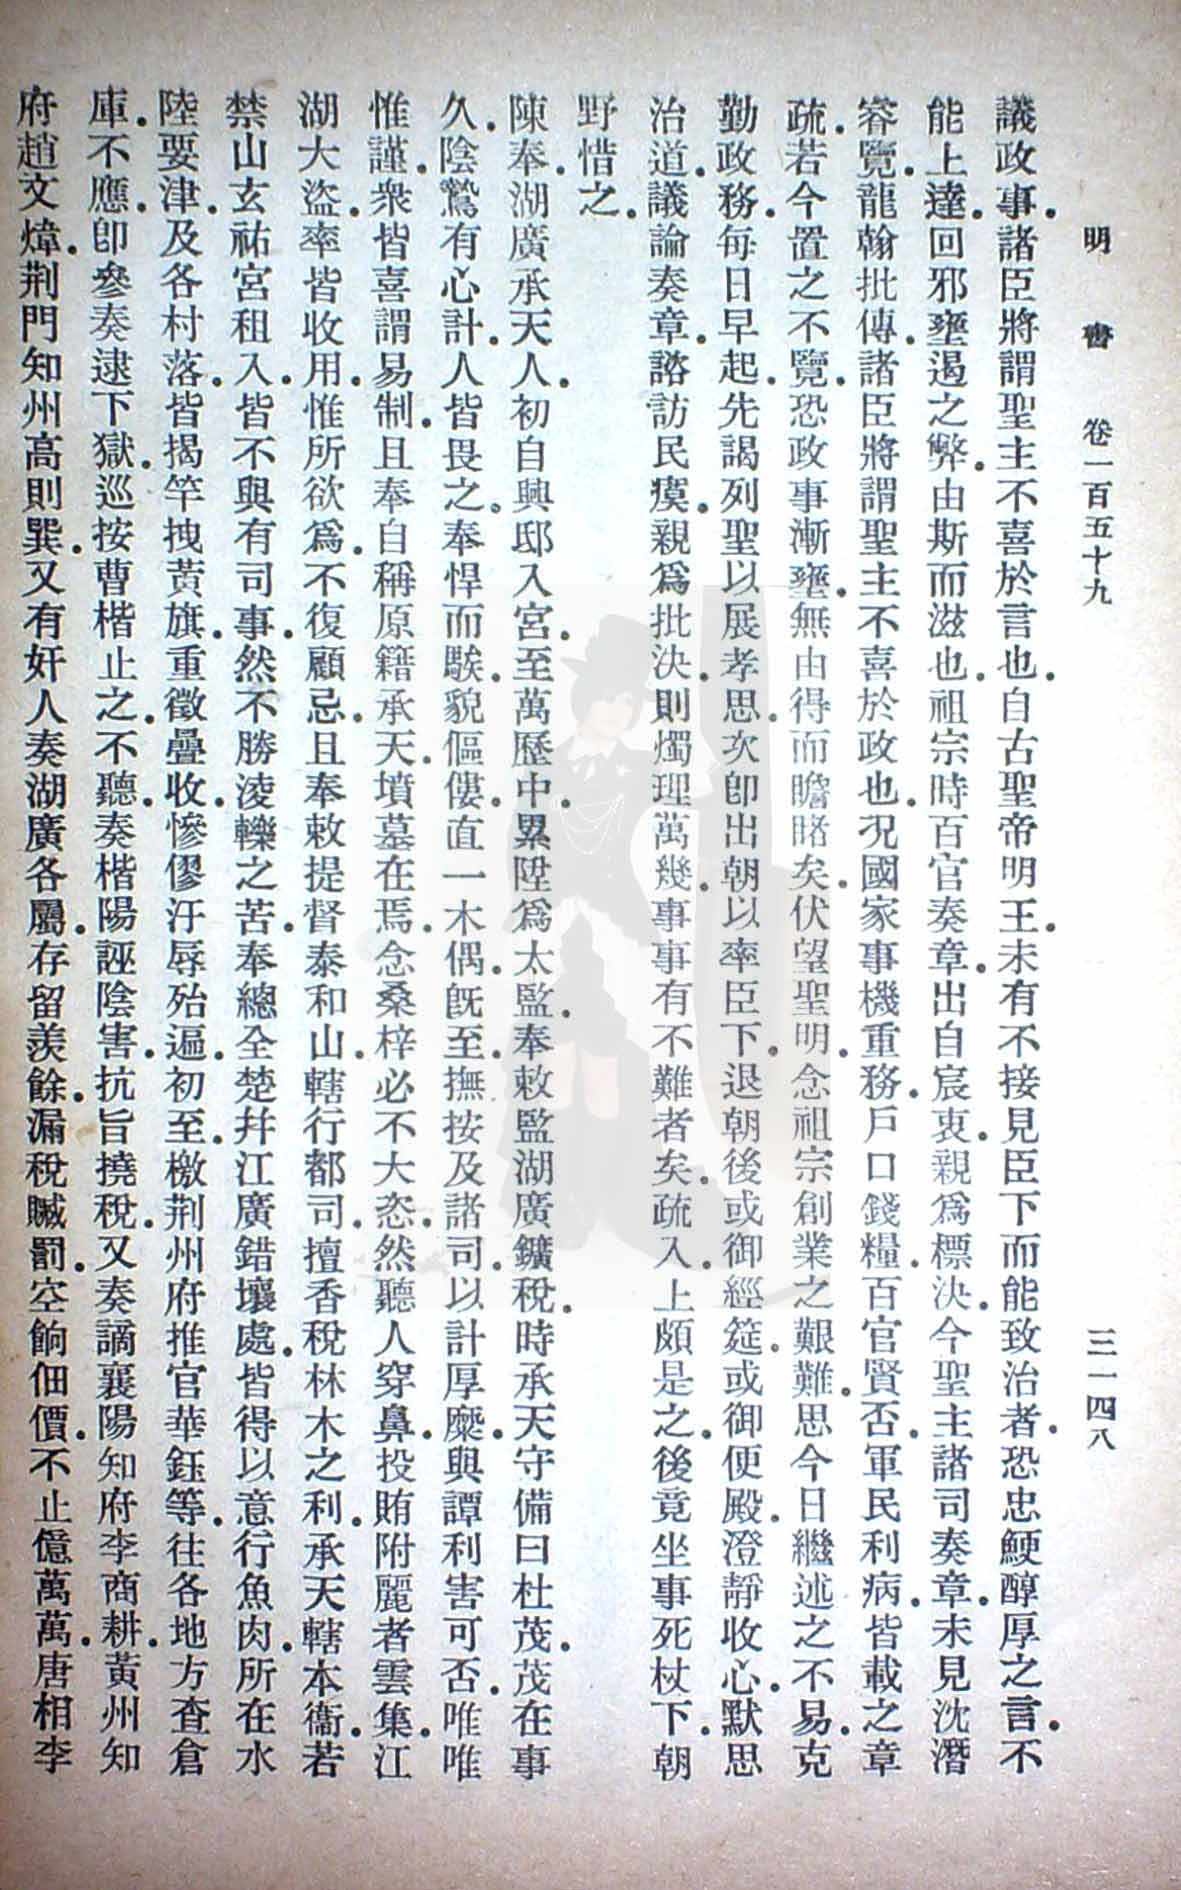 明書 卷一百五十九 三一四八
議政事。諸臣將謂聖主不喜於言也。自古聖帝明王。未有不接見臣下而能致治者。恐忠鯁醇厚之言。不
能上達。回邪壅遏之弊。由斯而滋也。祖宗時百官奏章。出自宸衷。親爲標決。今聖主諸司奏章。未見沈潛
睿覽。龍翰批傳。諸臣將謂聖主不喜於政也。況國家事機重務。戶口錢糧。百官賢否。軍民利病。皆載之章
疏。若今置之不覽。恐政事漸壅。無由得而瞻睹矣。伏望聖明。念祖宗創業之艱難。思今日繼述之不易。克
勤政務。每日早起。先謁列聖以展孝思。次卽出朝以率臣下。退朝後或御經筵。或御便殿。澄靜收心。默思
治道。議論奏章。諮訪民瘼。親爲批決。則燭理萬幾。事事有不難者矣。疏入。上頗是之。後竟坐事死杖下。朝
野惜之。
陳奉。湖廣承天人。初自興邸入宮。至萬歷中。累陞爲太監。奉敕監湖廣鑛稅。時承天守備曰杜茂。茂在事
久。陰鷙有心計。人皆畏之。奉悍而騃。貌傴僂。直一木偶。旣至。撫按及諸司以計厚糜。與譚利害可否。唯唯
惟謹。衆皆喜謂易制。且奉自稱原籍承天。墳墓在焉。念桑梓必不大恣。然聽人穿鼻。投賄附麗者雲集。江
湖大盜。率皆收用。惟所欲爲。不復顧忌。且奉敕提督泰和山。轄行都司。擅香稅林木之利。承天轄本衞。若
禁山玄祐宮租入。皆不與有司事。然不勝淩轢之苦。奉總全楚幷江廣錯壤處。皆得以意行魚肉。所在水
陸要津。及各村落。皆揭竿拽黃旗。重徵疊收。慘僇汙辱殆遍。初至。檄荆州府推官華鈺等。往各地方查倉
庫。不應。卽參奏逮下獄。巡按曹楷止之。不聽。奏楷陽誣陰害。抗旨撓稅。又奏謫襄陽知府李商耕。黃州知
府趙文煒。荆門知州高則巽。又有奸人奏湖廣各屬。存留羨餘。漏稅贓罰。空餉佃價。不止億萬萬。唐相李